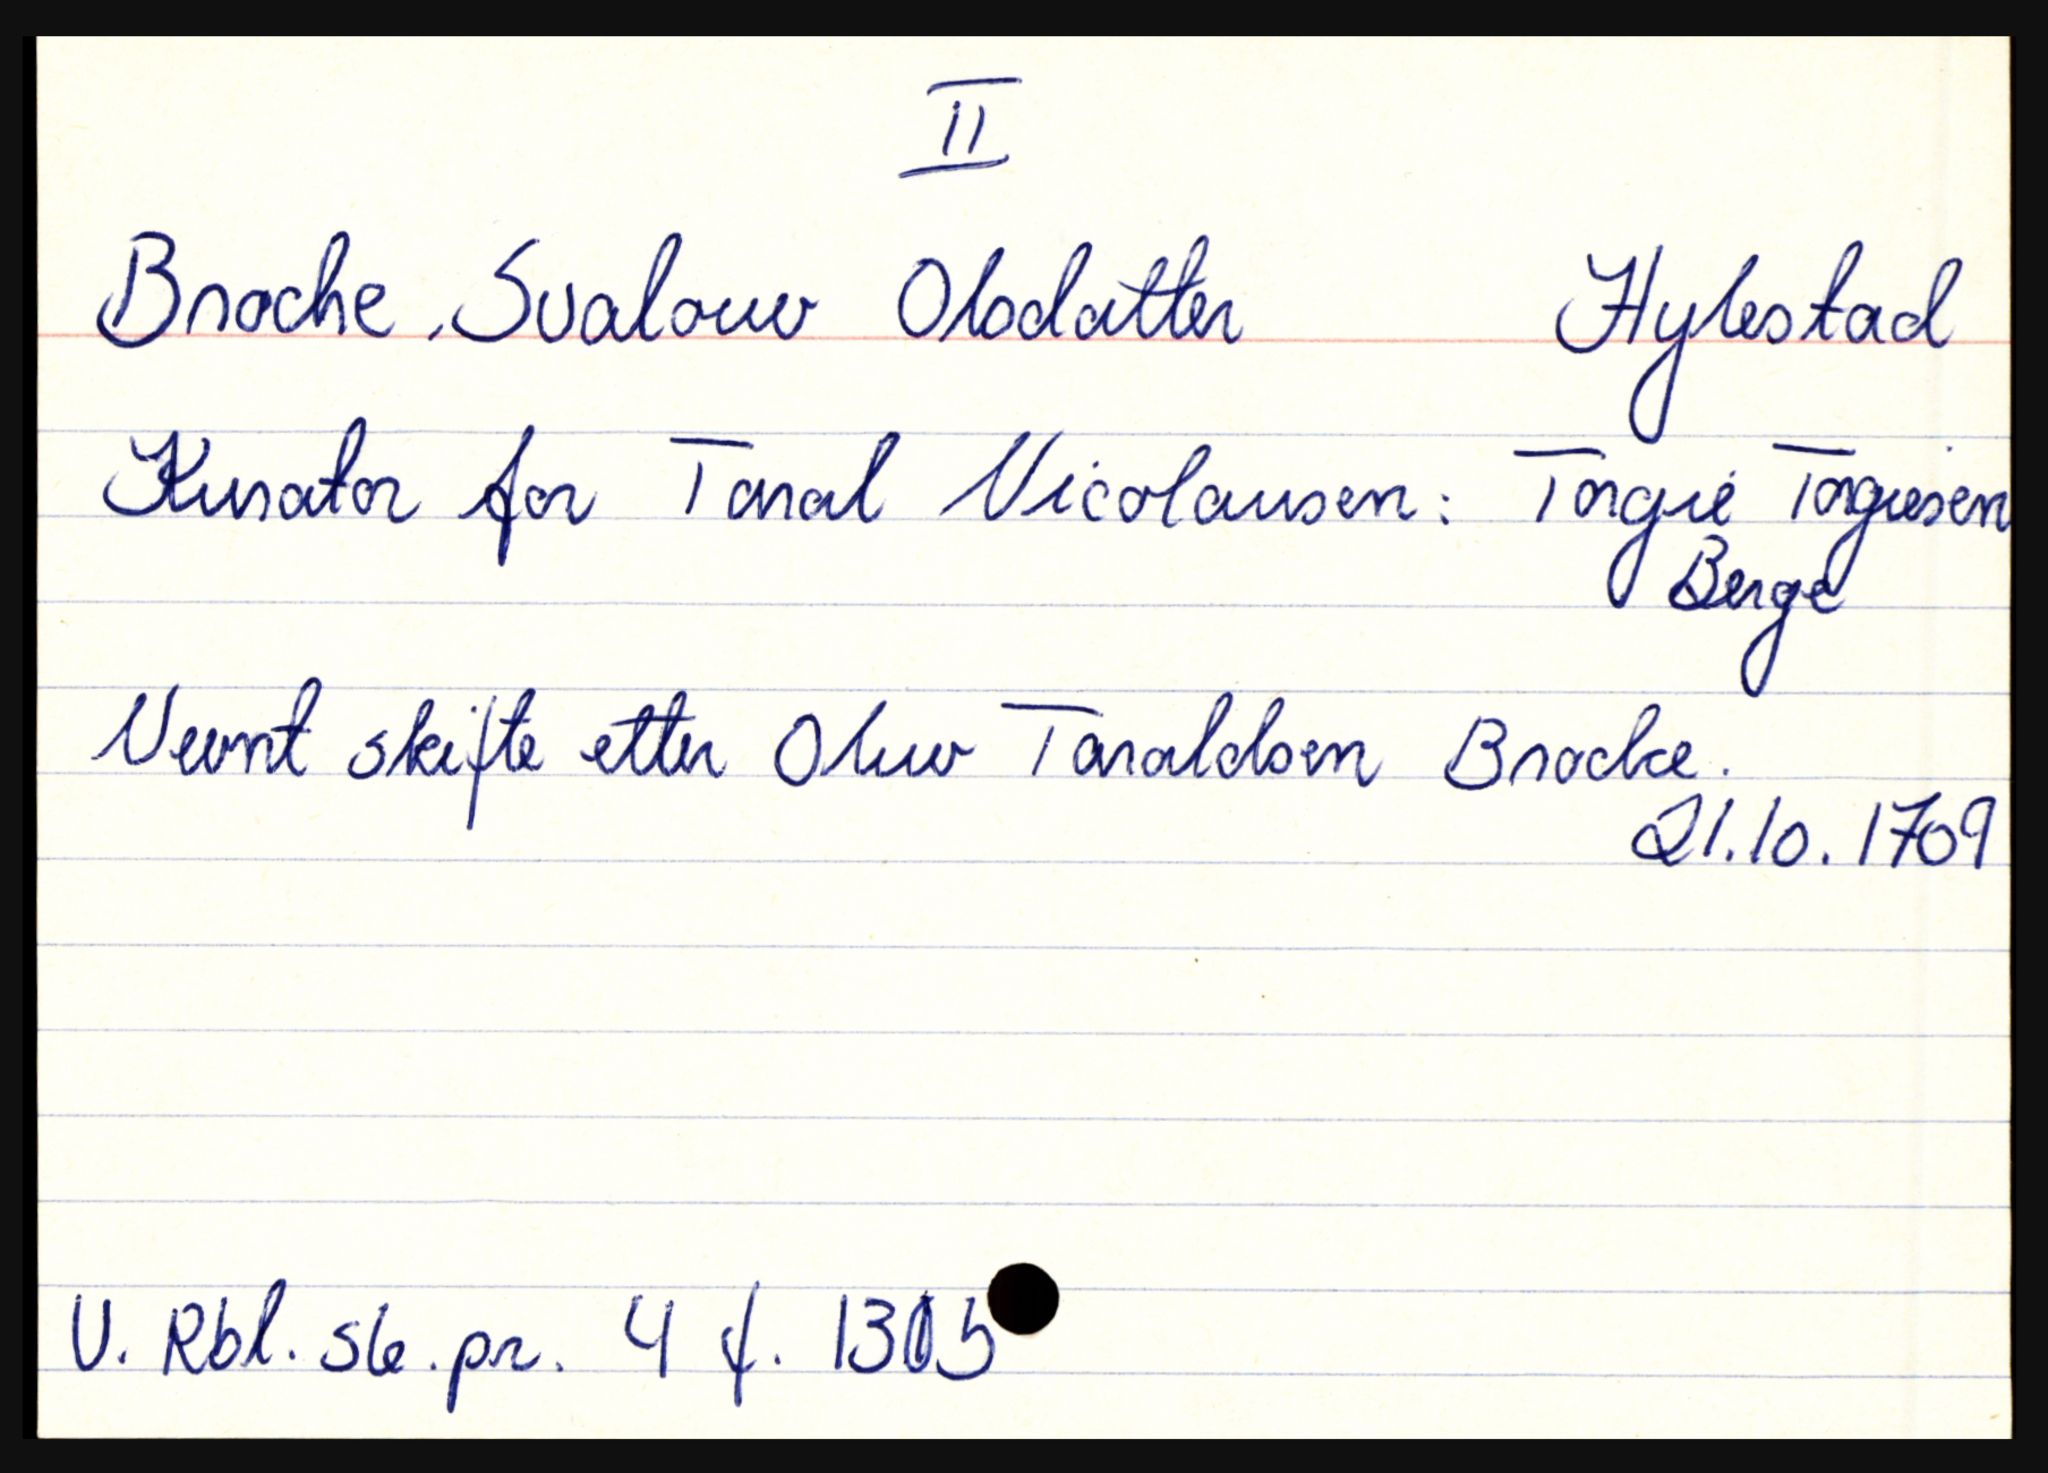 II
Brocke, Svalouv Olsdatter Hylestad
Kurator for Taral Nicolausen: Torgie Torgiesen
Berge
Nevnt skifte etter Oluv Taraldsen Brocke.
21.10.1709
V. Rbl. sk.pr. 4 f.